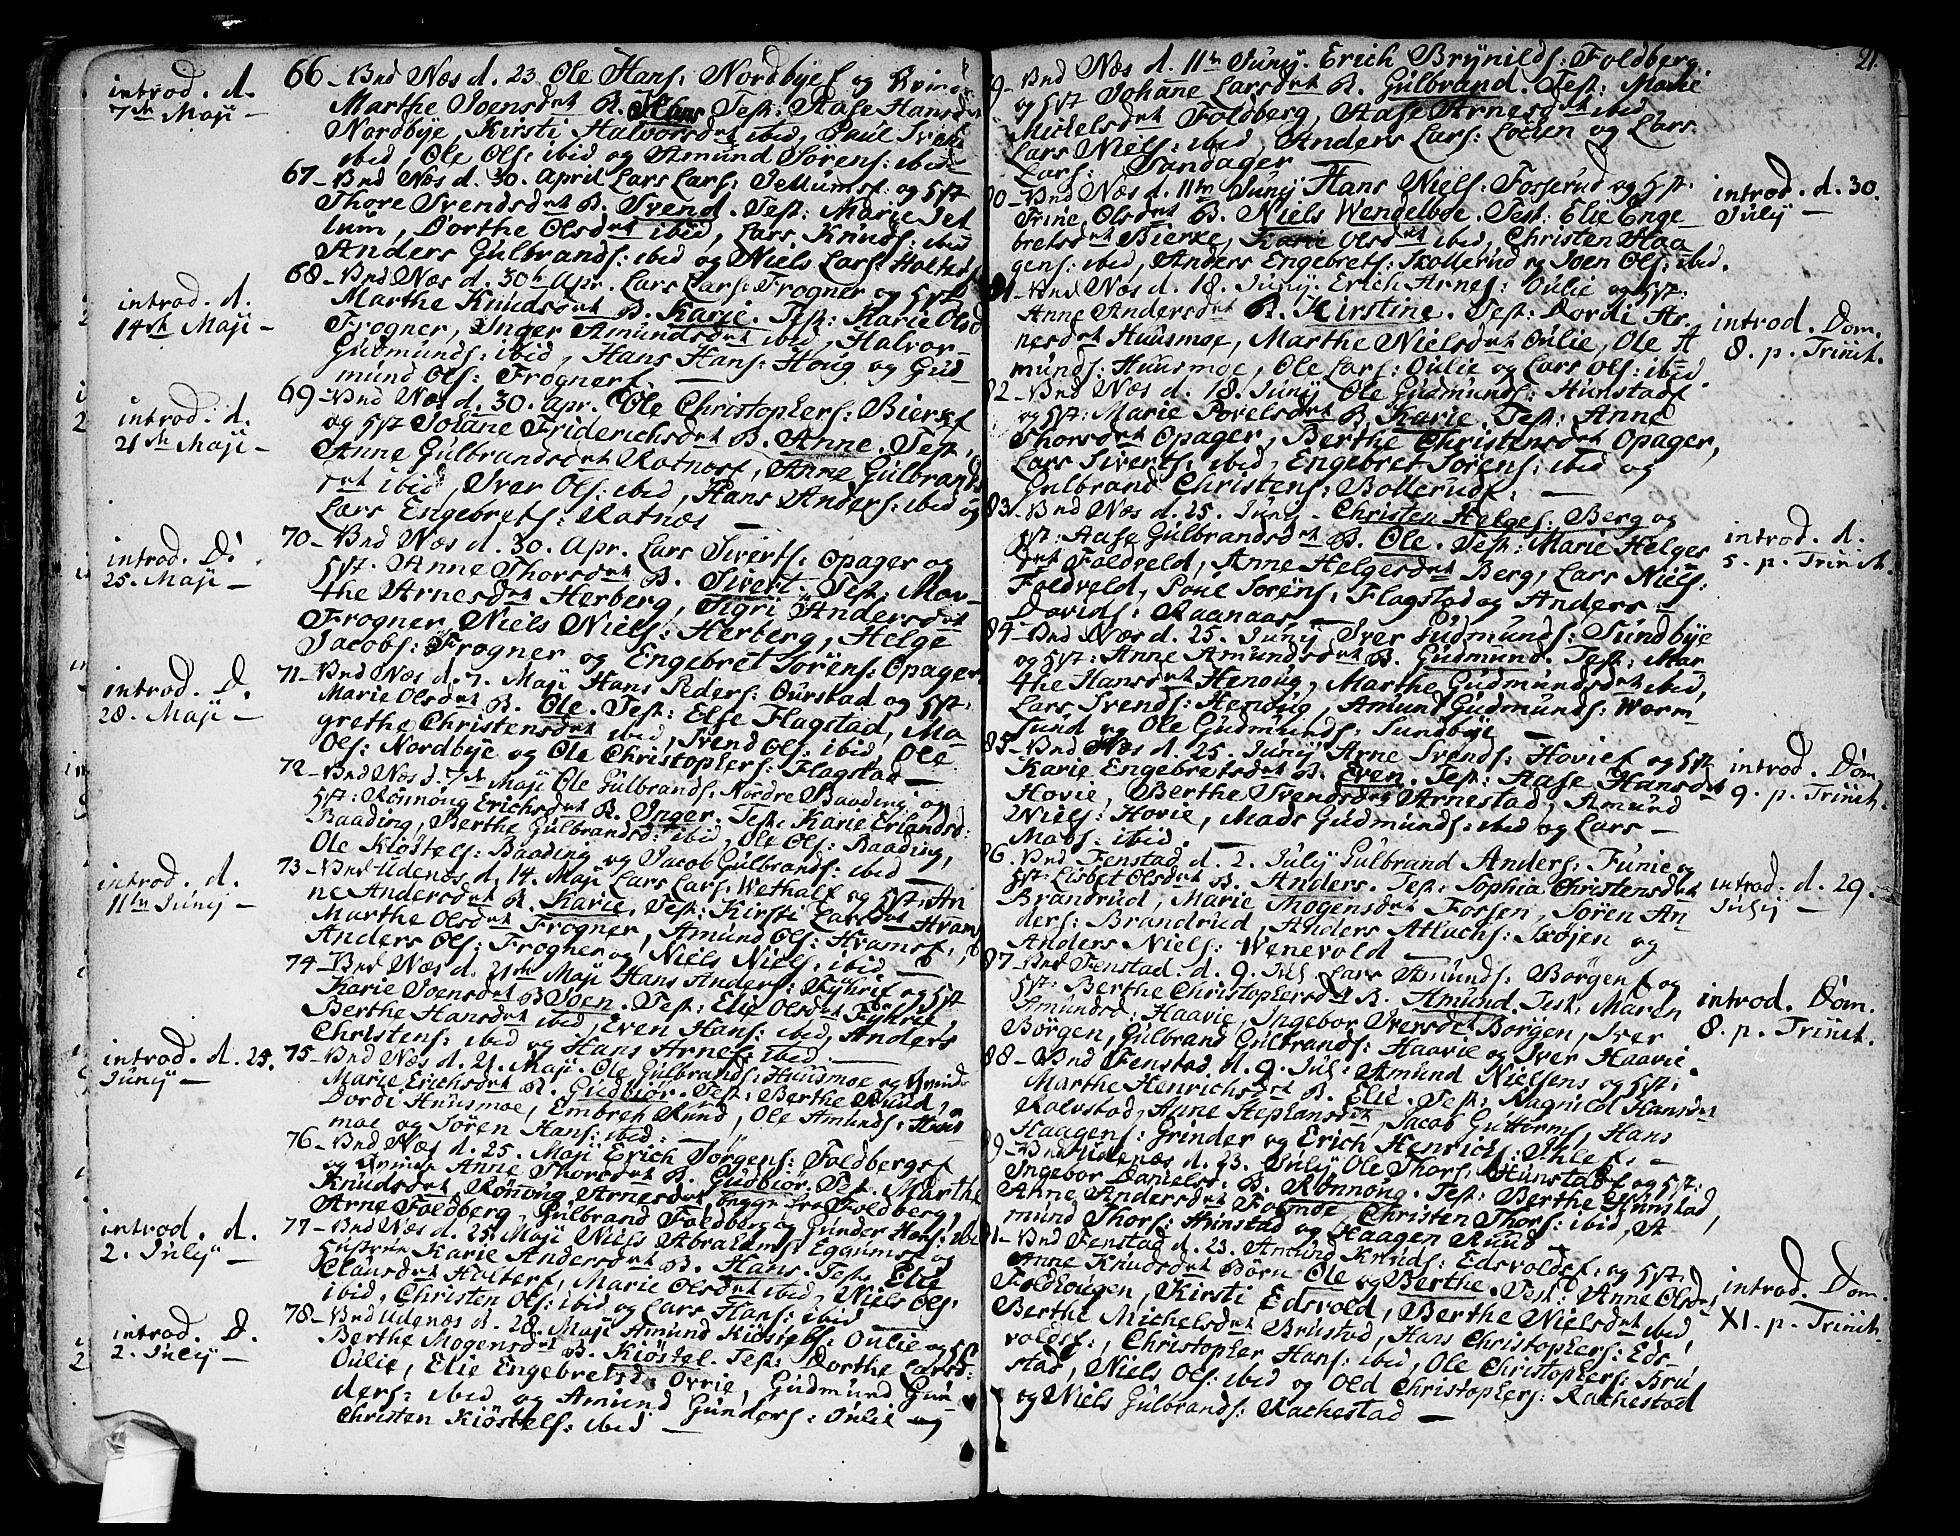 introd. d.
7de Maji —
66 – Bnd Næs d. 23 Ole Hans: Nordbye og Kvinde
Marthe Joensdtr B. Hans Test: Aase Hansdtr
Nordbye, Kirsti Halvorsdtr ibid, Paul
ibid, Ole Ols: ibid og Amund Sörens: ibid
67 – Bnd Næs d. 30. April Lars Lars: Jellumsf og Hst
Thore Svendsdtr B. Svend. Test: Marie Jel
lum, Dorthe Olsdtr ibid, Lars Knuds: ibid
Anders Gulbrands: ibid og Niels Lars: Halter
introd. d.
14de Maji –
68 – Bnd Næs d. 30te Apr. Lars Lars: Frogner og Hst
Marthe Knudsdtr B. Karie. Test: Karie Olsd
Frogner, Inger Amundsdtr ibid, Halvor
Gudmunds: ibid, Hans Hans: Houg og Gud-
mund Ols: Frogner. —
introd. d.
21de Maji –
69 – Bnd Næs d. 30. Apr. Ole Christophers: Bierkef
og Hst Johane Friderichsdtr B. Anne. Test,
Anne Gulbrandsdtr Ratnæs, Anne Gulbrands
dtr ibid, Iver Ols: ibid, Hans Anders: ibid og
Lars Engebrets: Ratnæs —
introd. D.
25. Maji –
70 – Bnd Næs d. 30. Apr. Lars Siverts: Opager og
Hst. Anne Thorsdtr B. Sivert. Test: Mar-
the Arnesdtr Herberg, Sigri Andersdtr
Frogner, Niels Niels: Herberg, Helge
Jacobs: Frogner og Engebret Sörens: Opager
introd. D.
28. Maji –
71 – Bnd Næs d. 7. Maji Hans Peders: Ourstad og Hst:
Marie Olsdtr B. Ole. Test: Else Flagstad, Ma-
grethe Christensdtr ibid, Svend Ols: ibid, Ole
Ols: Nordbye og Ole Christophers: Flagstad —
72 – Bnd Næs d. 7de Maji Ole Gulbrands: Nordre Baading og
Hst: Rönnoug Erichsdtr B. Inger. Test: Karie Erlandsd:
Baading, Berthe Gulbrandsd: ibid, Ole Ols: Baading,
Ole Kiöstels: Baading og Jacob Gulbrands: ibid —
introd. d.
11te Junij –
73 – Bnd Udenæs d. 14. Maji Lars Lars: Wethalf og Hst: An
ne Andersdtr B. Karie. Test: Kirsti Larsdtr Hvams
Marthe Olsdtr Frogner, Amund Ols: Hvamsf,
Anders Ols: Frogner og Niels Niels: ibid —
74 – Bnd Næs d. 21de Maji Hans Anders: Fyhrie og Hst
Karie Joensdtr B. Joen. Test: Elie Olsdtr Fyhrie,
Berthe Hansdtr ibid, Even Hans: ibid, Anders
Christens: ibid og Hans Arnes: ibid —
introd. d. 25.
Junij –
75 – Bnd Næs d. 21. Maji Ole Gulbrands: Huusmoe og Kvinde
Marie Erichsdtr B. Gudbiör. Test: Berthe Ruud,
Dordi Huusmoe, Embret Ruud, Ole Amunds: Huus
moe og Sören Hans: ibid:
76 – Bnd Næs d. 25. Maji Erich Jörgens: Foldbergsf
og Kvinde Anne Thorsdtr B. Gudbiör. Test. Marthe
Knudsdtr, Rönnoug Arnesdtr begge fra Foldberg,
Arne Foldberg, Gulbrand Foldberg og Gunder Hans: ibid
introd. d.
2. Julij –
77 – Bnd Næs d. 25. Maji Niels Abrahams: Eggumsf og
Hustrue Karie Andersdtr B. Hans. Test. Elie
Clausdtr Halterf, Marie Olsdtr ibid, Niels Ols:
ibid, Christen Ols: ibid og Lars Hans: ibid
introd. D.
2. Julij –
78 – Bnd Udenæs d. 28. Maji Amund Kiöstels: Oulie og Hst
Berthe Mogensdtr B. Kiöstel. Test: Dorthe Larsd:
Oulie, Elie Engebretsd. Ovrie, Gudmund Gun-
ders: ibid og Amund Gunders: Oulie og
Christen Kiöstels: ibid —
21.
9. Bnd Næs d. 11te Junij. Erich Brynilds: Foldberg
og Hst Johane Larsdtr B. Gulbrand. Test: Marie
Michelsdtr Foldberg, Aase Arnesdtr ibid
Lars Niels: ibid, Anders Lars: Lochen og Lars
Lars: Sandager
introd. d. 30.
Julij –
80 – Bnd Næs d. 11te Junij Hans Niels: Fosserud og Hst.
Trine Olsdtr B. Niels Wendelboe. Test: Elie Enge
bretsdtr Bierke, Karie Olsdtr ibid, Christen Haa
gens: ibid, Anders Engebrets: Skollerud og Joen Ols: ibid.
introd. Dom.
8. p. Trinit.
81 – Bnd Næs d. 18. Junij Erich Arnes: Oulie og Hst:
Anne Andersdtr B. Kirstine. Test: Dordi Ar-
nesdtr Huusmoe, Marthe Nielsdtr Oulie, Ole A
munds: Huusmoe, Ole Lars: Oulie og Lars Ols: ibid
82 – Bnd Næs d. 18. Junij Ole Gudmunds: Hunstadf
og Hst: Marie Povelsdtr B. Karie. Test: Anne
Thorsdtr Opager, Berthe Christensdtr Opager,
Lars Siverts: ibid, Engebret Sörens: ibid og
Gulbrand Christens: Bollerudf. —
introd. d.
5. p. Trinit.
83. Bnd Næs d. 25. Junij – Christen Helges: Berg og
Hst: Aase Gulbrandsdtr B. Ole. Test: Marie Helges
dtr Foldveld, Anne Helgesdtr Berg, Lars Niels:
Foldveld, Poul Sörens: Flagstad og Anders –
Davids: Raanaas –
84 – Bnd Næs d. 25. Junij Iver Gudmunds: Sundbye
og Hst: Anne Amundsdtr B. Gudmund. Test: Mar
the Hansdtr Henoug, Marthe Gudmundsdtr ibid,
Lars Svends: Henoug, Amund Gudmunds: Worm
sund og Ole Gudmunds: Sundbye —
introd. Dom.
9. p. Trinit.
85 – Bnd Næs d. 25. Junij Arne Svends: Hovief og Hst
Karie Engebretsdtr B. Even. Test: Aase Hansdtr
Hovie, Berthe Svendsdtr Arnestad, Amund
Niels: Hovie, Mads Gudmunds: ibid og Lars –
Mads: ibid.
introd. d. 29.
Julij –
86. Bnd Fenstad d. 2. Julij Gulbrand Anders: Funie og
Hst: Lisbet Olsdtr B. Anders. Test: Sophia Christensdtr
Brandrud, Marie Mogensdtr Fossen, Sören An
ders: Brandrud, Anders Atluchs: Skøjen og
Anders Niels: Wenevold —
introd. Dom.
8. p. Trinit.
87 – Bnd Fenstad d. 9. Jul: Lars Amunds: Borgenf og
Hst: Berthe Christophersdtr B. Amund. Test: Maren
Amundsd: Haavie, Ingebor Iversdtr Borgen, Iver
Borgen, Gulbrand Gulbrands: Haavie og Iver Haavie.
88 – Bnd Fenstad d. 9. Jul: Amund Nielsens og Hst:
Marthe Henrichsdtr B. Elie. Test: Ragnild Hansdtr
Rolvstad, Anne Stephansdtr, Jacob Guttorms, Hans
Haagens: Grinder og Erich Henrichs: Ihlef: —
9 – Bnd Udenæs d. 23. Julij Ole Thors: Hunstadf og Hst:
Ingebor Danielsd: B. Rönnoug. Test: Berthe Hunstad,
Anne Andersdtr Folmoe, Christen Thors: ibid, A
mund Thors: Hunstad og Haagen Ruud —
introd. Dom.
XI. p. Trinit.
91 – Bnd Fenstad d. 23. Amund Knuds: Edsvoldsf: og Hst:
Anne Knudsdtr Börn Ole og Berthe. Test: Anne Olsdr,
Foldhougen, Kirsti Edsvold, Berthe Nielsdtr ibid,
Berthe Michelsdtr Brustad, Hans Christophers: Eds-
voldsf:, Christopher Hans: ibid, Ole Christophers: Bru,
stad, Niels Ols: ibid og Old Christophers: Rachestad
og Niels Gulbrands: Rachestad —